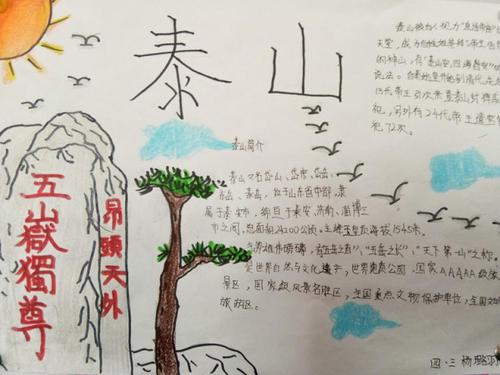 泰山
泰山被古人视为“直通帝座”的
天堂，成为百姓崇拜，帝王告祭
的神山，有“泰山安，四海皆安”的
说法。自秦始皇开始到清代，先后
13代帝王引次亲登泰山封禅或祭
祀，另外有24代帝王遣官祭
祀72次。
泰山简介
泰山又名岱山、岱宗、岱岳、
东岳、泰岳，位于山东省中部，隶
属于泰安市，绵亘于泰安、济南、淄博三
市之间，总面积24200公顷。主峰玉皇顶海拔1545米，
气势雄伟磅礴，有“五岳之首”、“五岳之长”、“天下第一山”之称。
是世界自然与文化遗产，世界地质公园，国家AAAAA级旅
景区，国家级风景名胜区，全国重点文物保护单位，全国文
旅游区。
五嶽獨尊
昂頭天外
四·三 杨